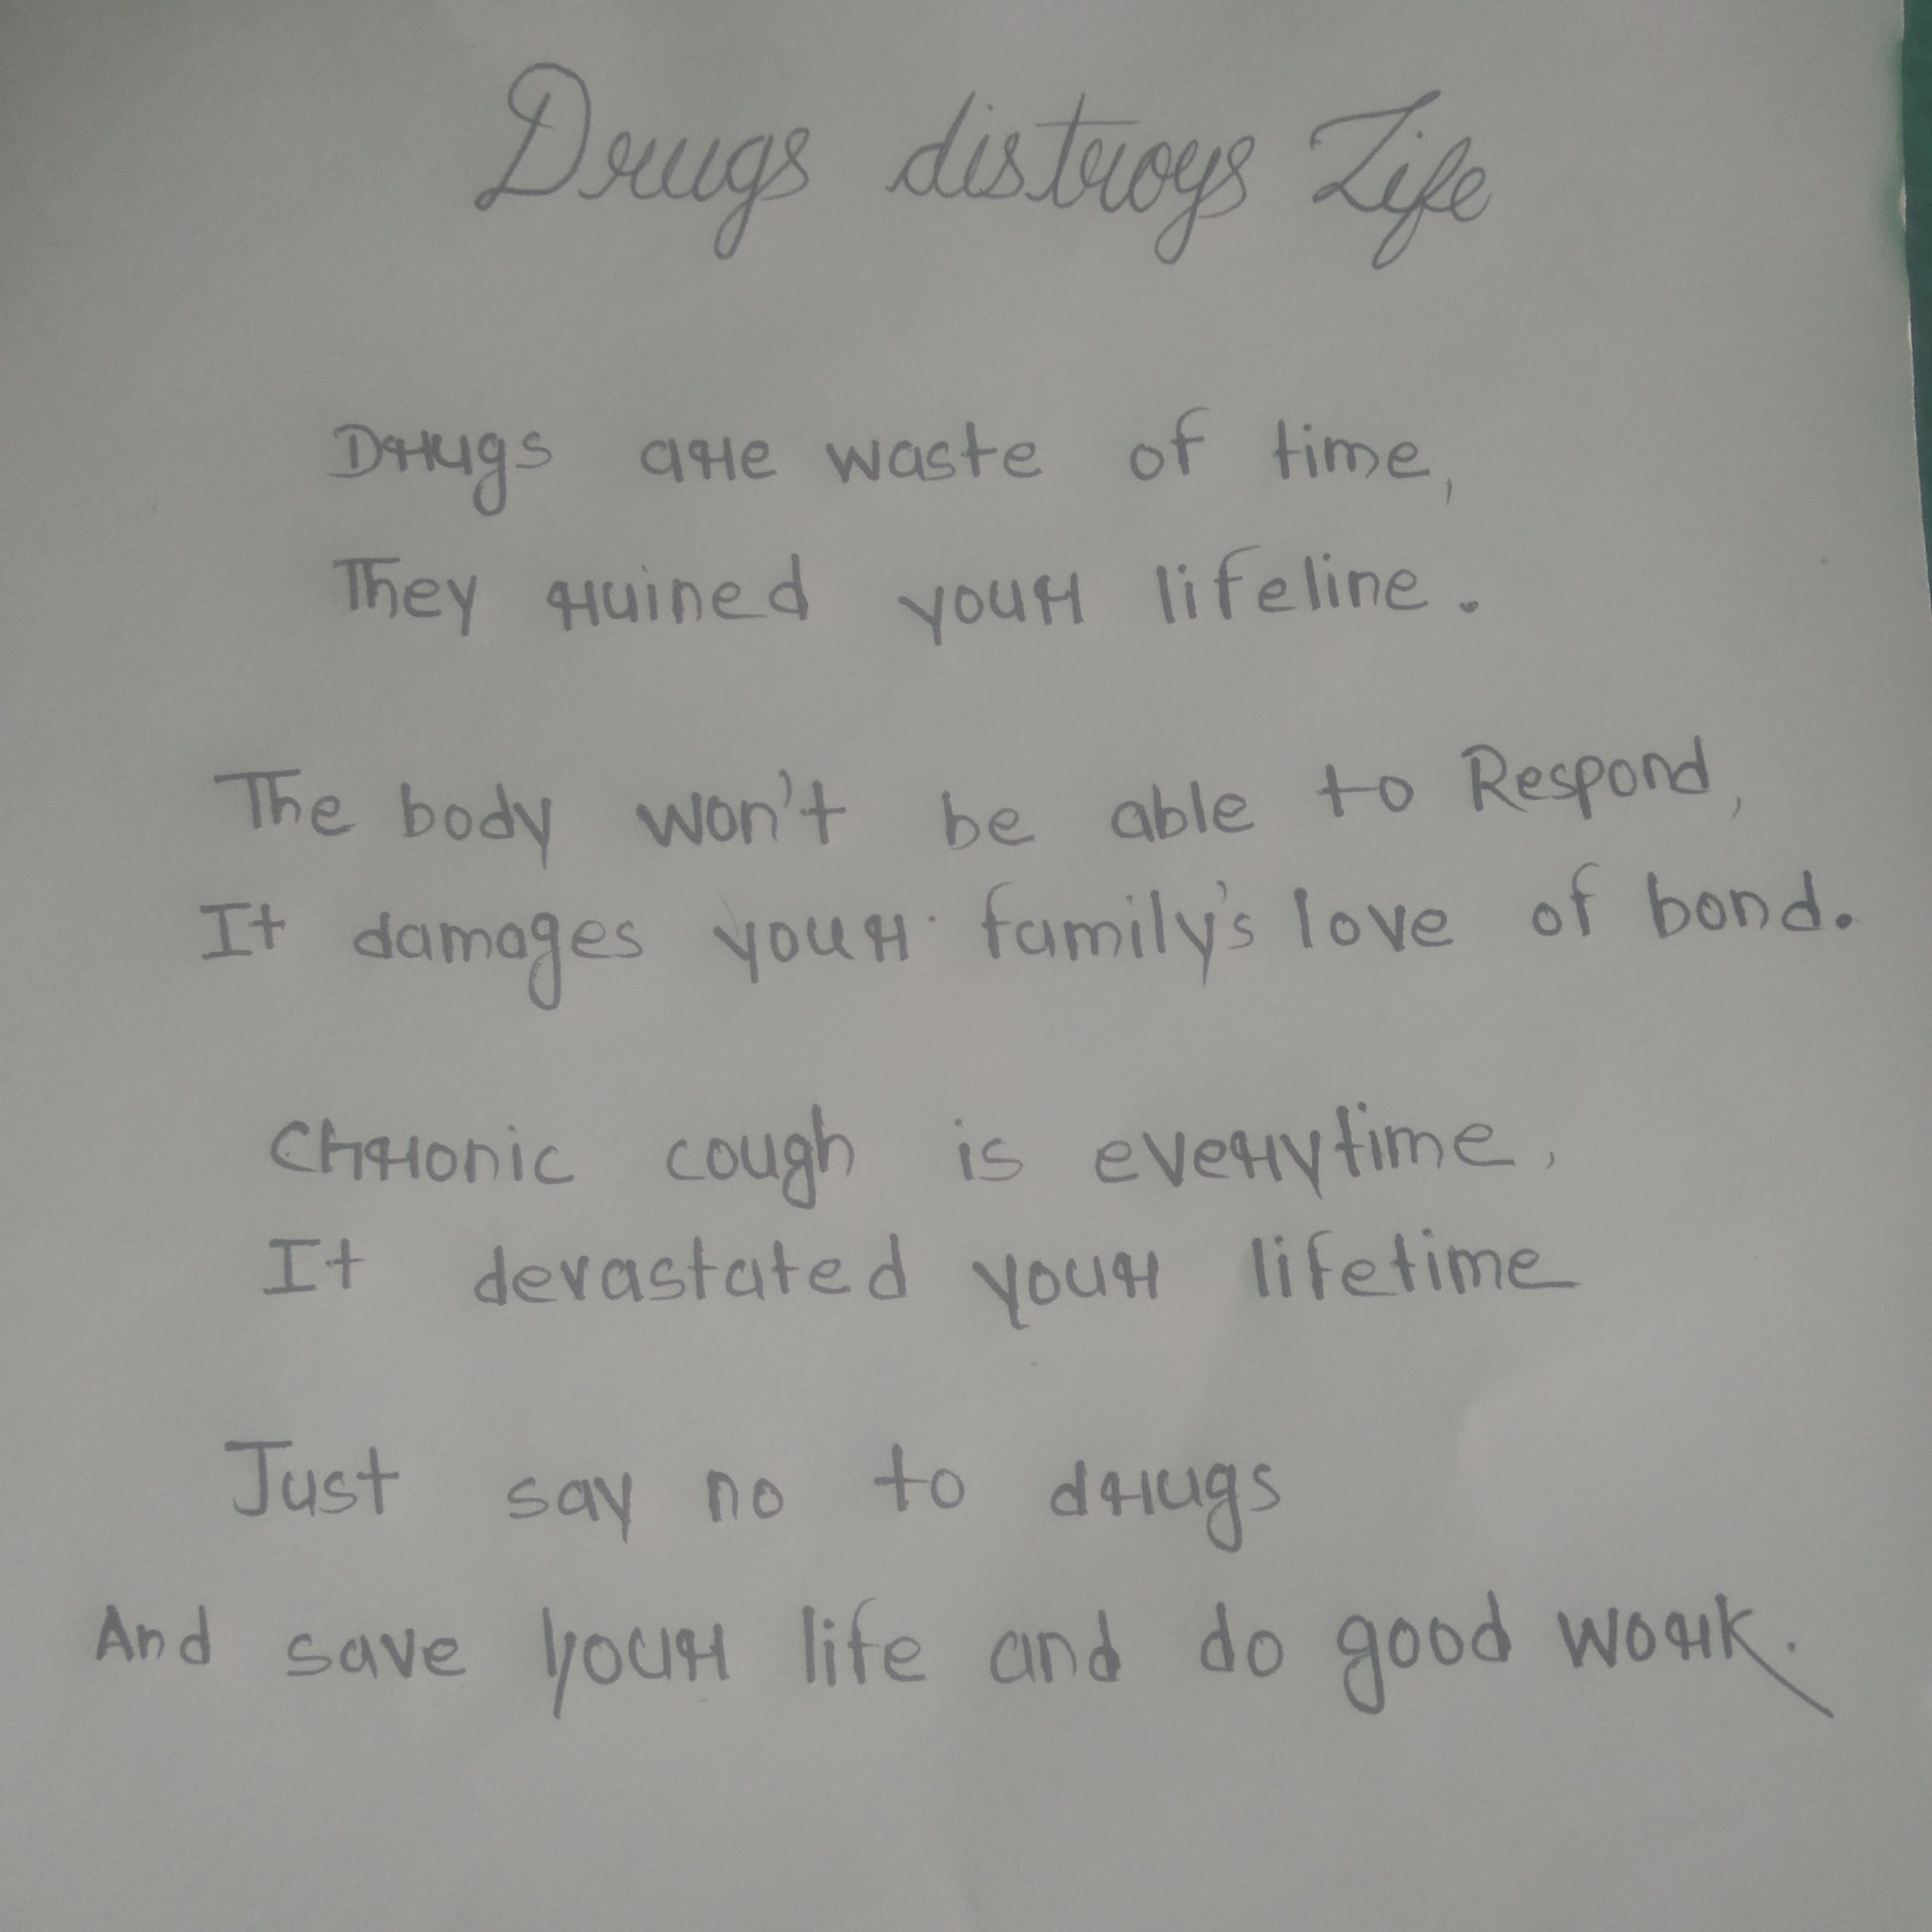 Drugs distroys Life
Drugs are waste of time,
They ruined your lifeline.
The body won't be able to Respond,
It damages your family's love of bond.
Chronic cough is everytime,
It devastated your lifetime
Just say no to drugs
And save your life and do good work.